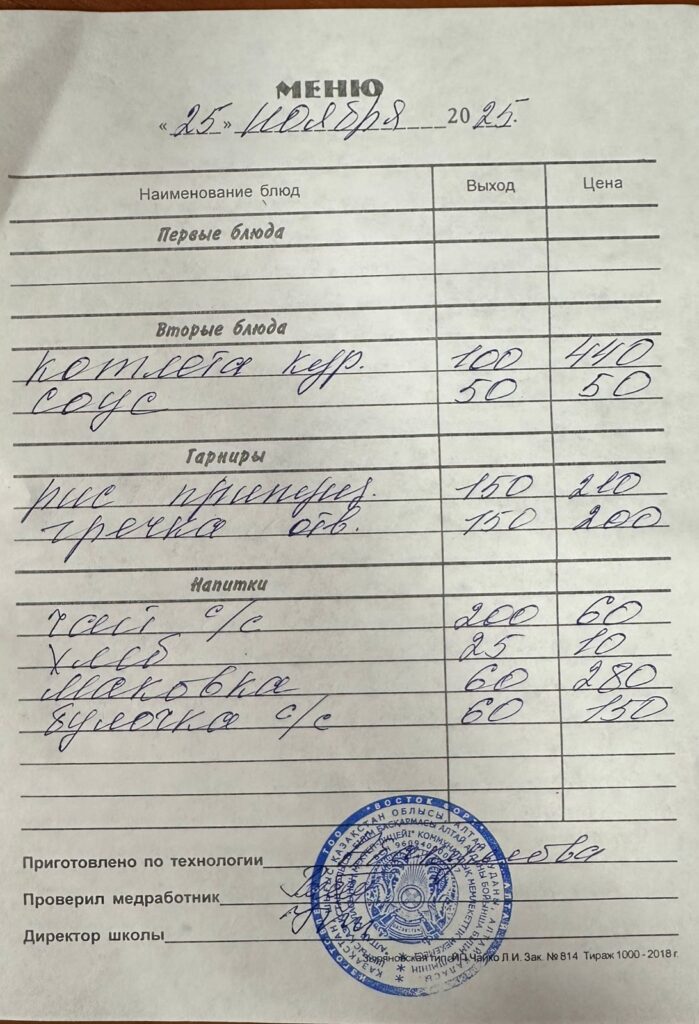 МЕНЮ
«25» ноября 2025.
Наименование блюд Выход Цена
Первые блюда
Вторые блюда
котлета кур. 100 440
соус 50 50
Гарниры
рис припущ. 150 210
гречка отв. 150 200
Напитки
чай с/с 200 60
хлеб 25 10
маковка 60 280
булочка с/с 60 150
Приготовлено по технологии
Проверил медработник
Директор школы
Зыряновская тип. Чайко Л.И. Зак. № 814 Тираж 1000 - 2018 г.